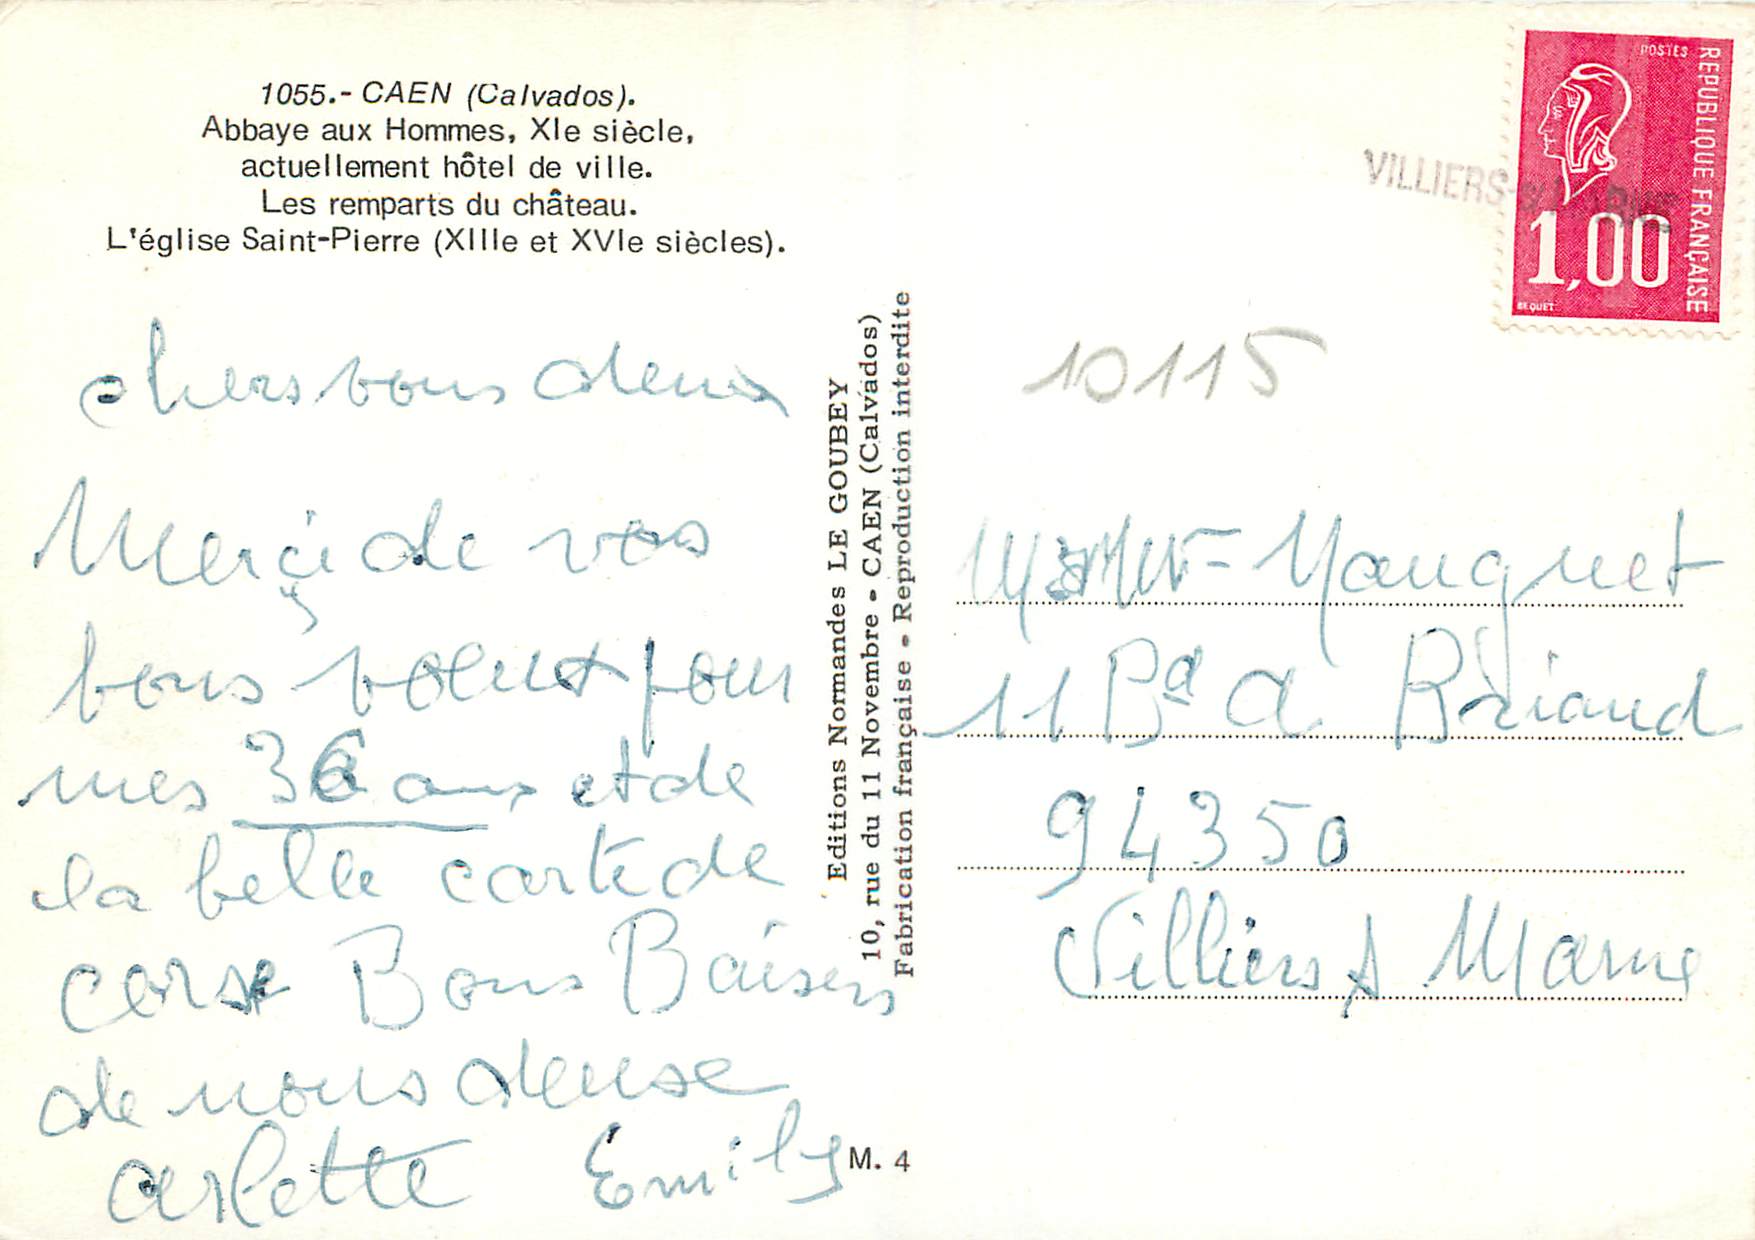 1055.- CAEN (Calvados).
Abbaye aux Hommes, XIe siècle,
actuellement hôtel de ville.
Les remparts du château.
L'église Saint-Pierre (XIIIe et XVIe siècles).
chers vous deux
Merçi de vos
bons voeux pour
mes 36 ans et de
la belle carte de
corse Bons Baisers
de nous deuse
arlette Emily
Editions Normandes LE GOUBEY
10, rue du 11 Novembre - CAEN (Calvados)
Fabrication française - Reproduction interdite
M. 4
POSTES
REPUBLIQUE FRANÇAISE
1,00
BEQUET
VILLIERS-S/MARNE
10115
Mauguet
11 Bd A. Briand
94350
Villiers s Marne